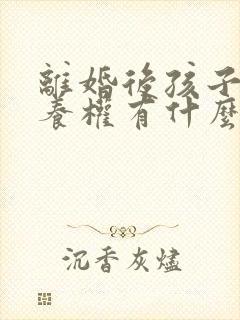 離婚後孩子
養權有什麼
沉香灰燼